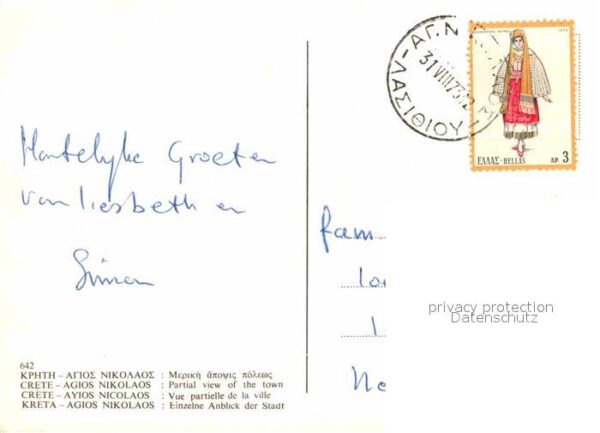 Hartelijke Groeten
van Liesbeth en
Simon
fam
Ne
privacy protection
Datenschutz
31 VIII 73.12
ΕΛΛΑΣ · HELLAS ΔΡ. 3
642
ΚΡΗΤΗ – ΑΓΙΟΣ ΝΙΚΟΛΑΟΣ : Μερική ἄποψις πόλεως
CRETE – AGIOS NIKOLAOS : Partial view of the town
CRÈTE – AYIOS NICOLAOS : Vue partielle de la ville
KRETA – AGIOS NIKOLAOS : Einzelne Anblick der Stadt